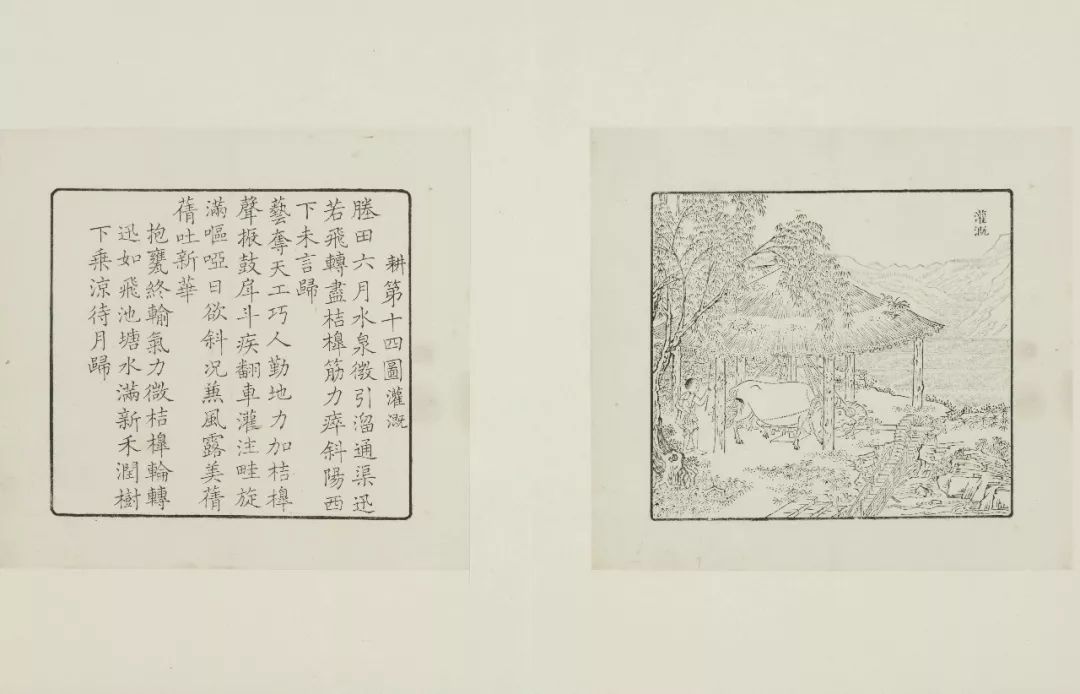 灌溉
耕第十四圖灌溉
塍田六月水泉微引溜通渠迅
若飛轉盡桔槹筋力瘁斜陽西
下未言歸
藝奪天工巧人勤地力加桔槹
聲振鼓戽斗疾翻車灌注畦旋
滿嘔啞日欲斜况兼風露美蒨
蒨吐新華
抱甕終輸氣力微桔槹輪轉
迅如飛池塘水滿新禾潤樹
下乘涼待月歸